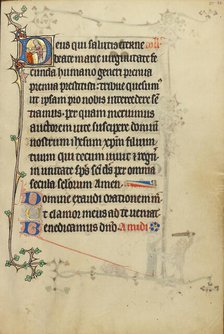 Deus qui salutis eterne coll
beate marie virginitate fe
cunda humano generi premia
premia prestitisti tribue quesumus
ut ipsam pro nobis intercedere sen
ciamus per quam meruimus
auctorem vite suscipere dominū
nostrum ihesum xp̄m filium
tuum Qui tecum vivit et regn̄
in unitate spiritus sancti deus per omnia
secula seculorum Amen
Domine exaudi orationem m̄
Et clamor meus ad te veniat
Benedicamus dn̄o